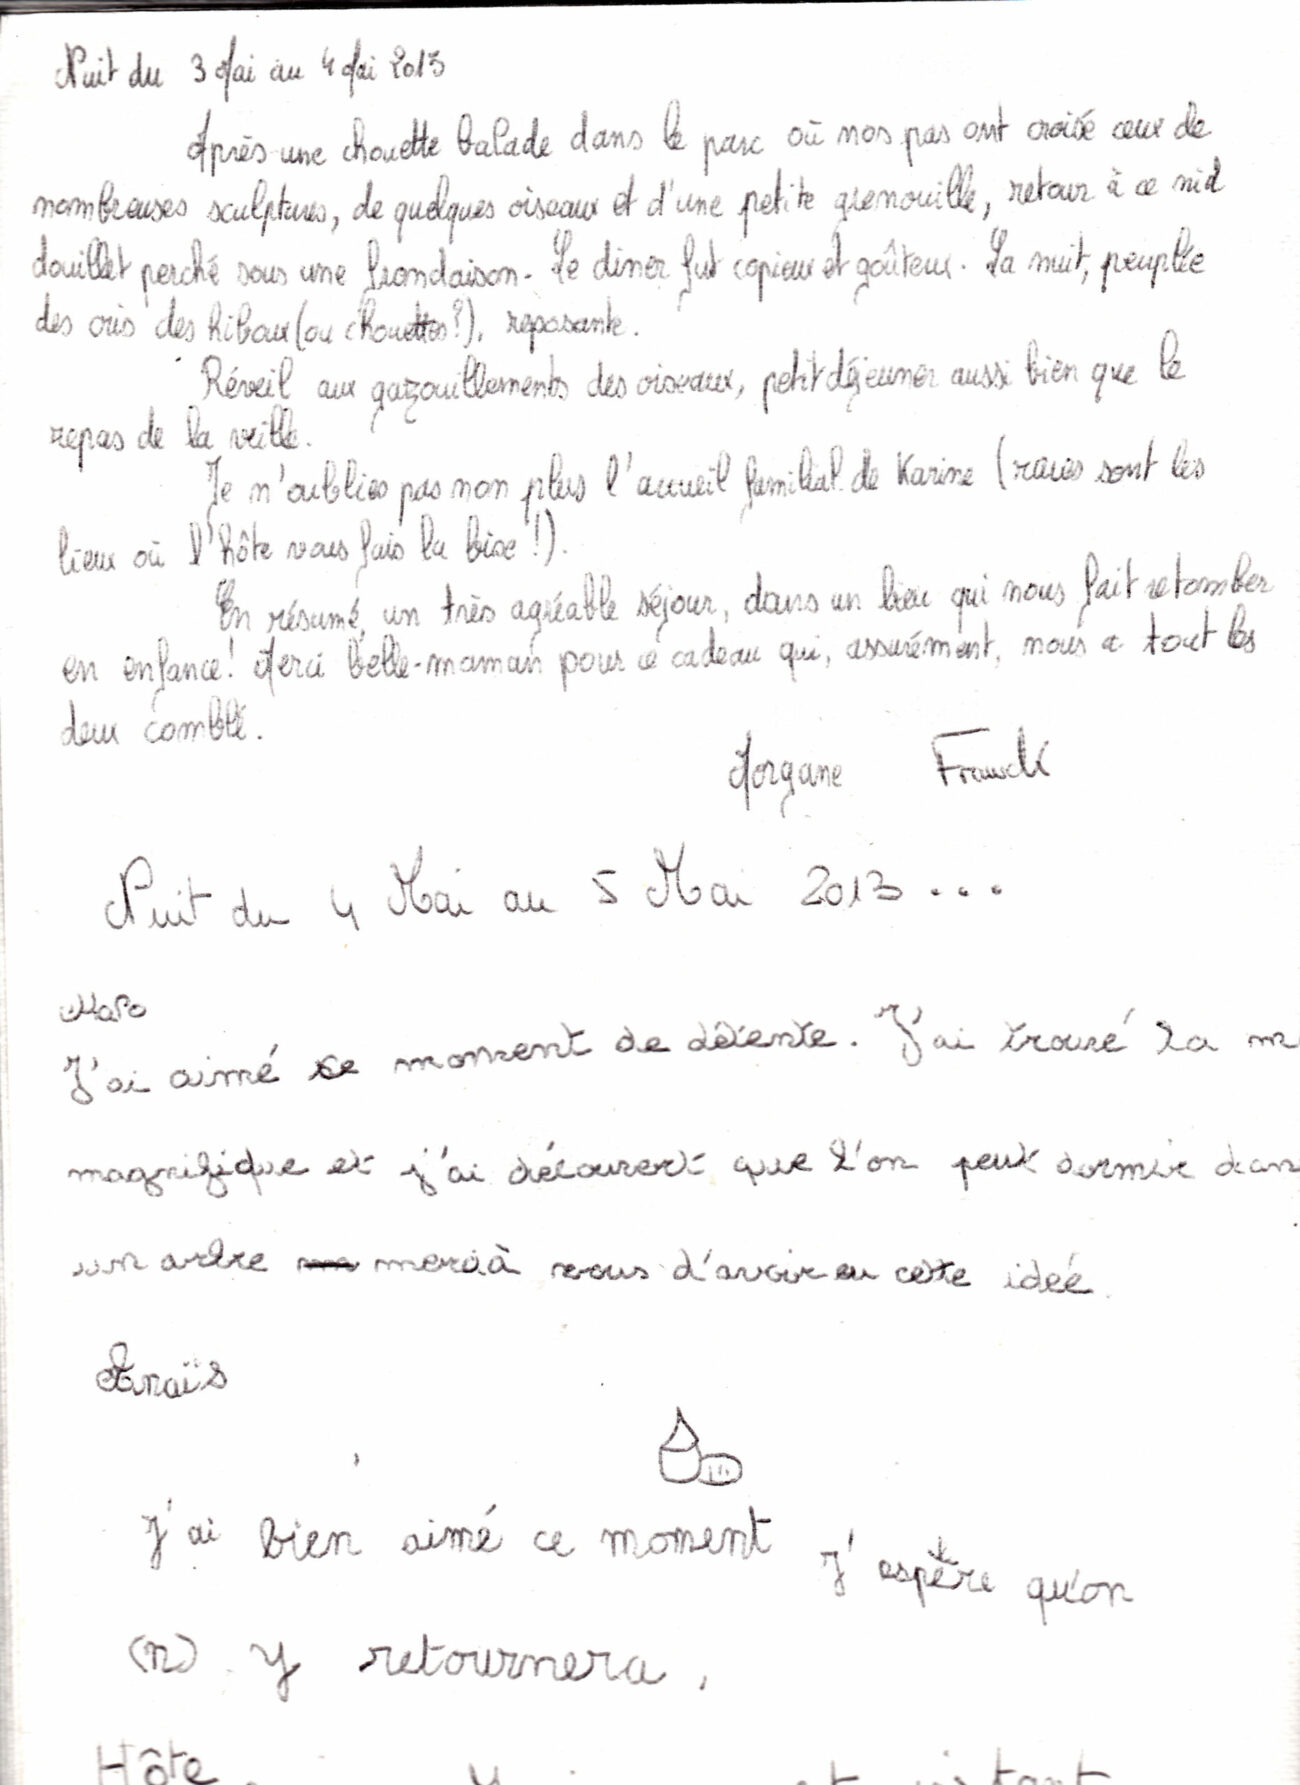 Nuit du 3 Mai au 4 Mai 2013
Après une chouette balade dans le parc où nos pas ont croisé ceux de
nombreuses sculptures, de quelques oiseaux et d'une petite grenouille, retour à ce nid
douillet perché sous une frondaison. Le diner fut copieux et goûteux. La nuit, peuplée
des cris des hiboux (ou chouettes?), reposante.
Réveil aux gazouillements des oiseaux, petit déjeuner aussi bien que le
repas de la veille.
Je n'oublies pas non plus l'accueil familial de Karine (rares sont les
lieux où l'hôte vous fais la bise!).
En résumé, un très agréable séjour, dans un lieu qui nous fait retomber
en enfance! Merci belle-maman pour ce cadeau qui, assurément, nous a tout les
deux comblé.
Morgane Franck
Nuit du 4 Mai au 5 Mai 2013...
J'ai aimé ce moment de détente. J'ai trouvé la
magnifique et j'ai découvert que l'on peut dormir dans
un arbre merci à vous d'avoir eu cette idée.
Anaïs
J'ai bien aimé ce moment J'espère qu'on
(n) y retournera.
Hôte